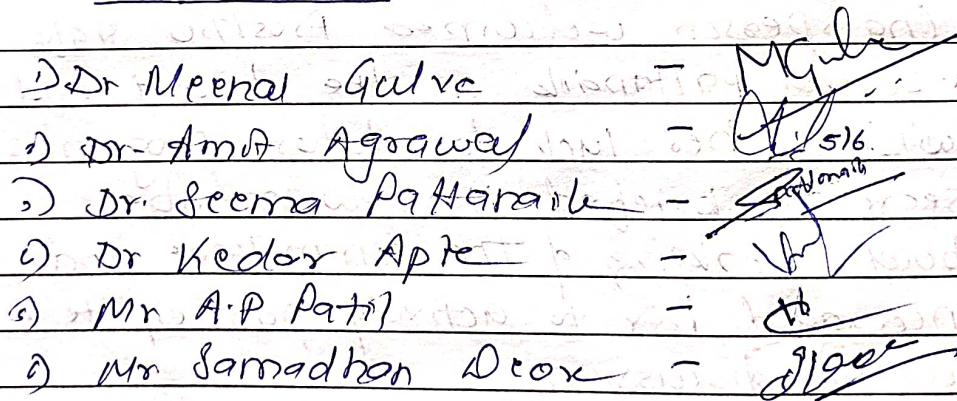 1) Dr Meenal Gulve -
2) Dr- Amit Agrawal - 5/6.
3) Dr. Seema Pattanaik - Pattanaik
4) Dr Kedar Apte -
5) Mr A.P Patil -
6) Mr Samadhan Deore -